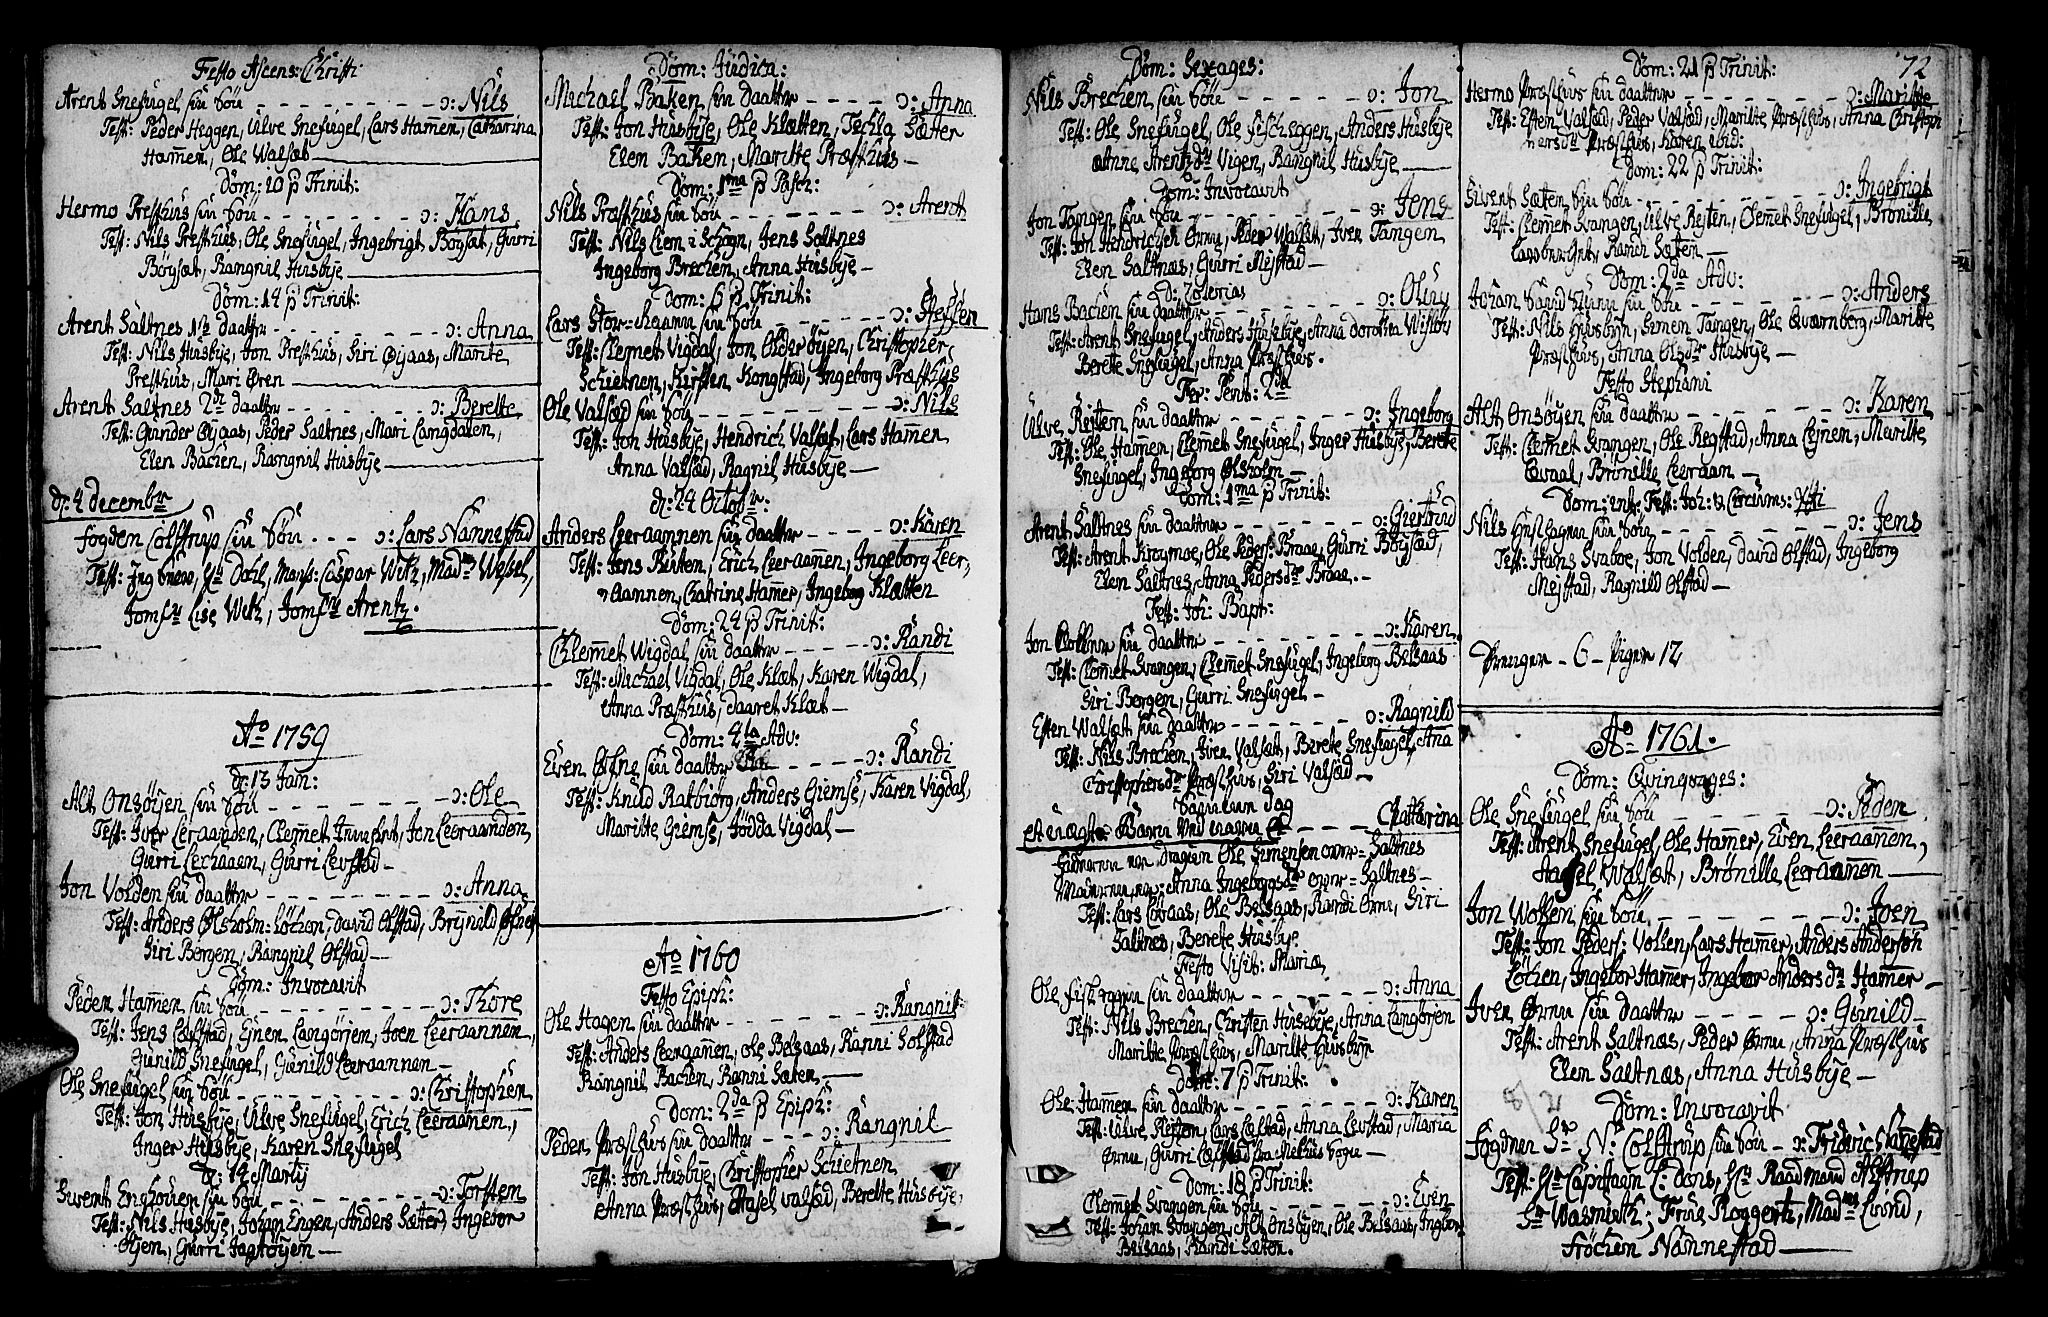 Festo Ascens: Christi
Arent Snefugel sin Søn - - - - ɔ: Nils
Test: Peder Heggen, Ulve Snefugel, Lars Ham̄en, Catharina
Ham̄en, Ole Walsæt
Dom: 10 p Trinit:
Hermo Presthus sin Søn - - - - ɔ: Hans
Test: Nils Presthus, Ole Snefugel, Ingebrigt Bøysæt, Gurri
Bøysæt, Rangnil Husbye
Dom: 14 p Trinit:
Arent Saltnes 1ste daatter - - - - ɔ: Anna
Test: Nils Husbye, Jon Presthus, Siri Øyaas, Maritte
Presthus, Mari Øren
Arent Saltnes 2den daatter - - - - ɔ: Berette
Test: Gunder Øyaas, Peder Saltnes, Mari Langdalen,
Elen Bachen, Rangnil Husbye
d: 4 decembr
fogden Colstrup sin Søn - - - ɔ: Lars Nannestad
Test: Hr Dohl, Mons: Caspar With, Madme Wessel,
Jomfr Lise With, Jomfr Arentz.
Ao 1759
d: 13 Jan:
Alt Onsøyen sin Søn - - - - ɔ: Ole
Test: Iver Leraanden, Clem̄et, Jon Leeraanden
Gurri Leeraaen, Gurri Levstad
Jon Volden sin daatter - - - - ɔ: Anna
Test: Anders Ølsholm: Løchen, David Olstad, Brynild
Siri Bergen, Rangnil Olstad
Dom: Invocavit
Peder Ham̄en sin Søn - - - - ɔ: Thore
Test: Jens Colstad, Einen Langørjen, Joen Leeraannen,
Gunild Snefugel, Gunild Leeraannen
Ole Snefugel sin Søn - - - - ɔ: Christopher
Test: Jon Husbye, Ulve Snefugel, Erich Leeraanen,
Inger Husbye, Karen Snefugel
d: 14 Martij
Sivert Enghouen sin Søn - - - - ɔ: Torsten
Test: Nils Husbye, Johan Engen, Anders Sætter, Ingebor
Øyen, Gurri Jagtøyen
Dom: Judica:
Michael Baken sin daatter - - - - ɔ: Anna
Test: Jon Husbye, Ole Klætten, Techla Sætter
Elen Baken, Maritte Præsthus
Dom: 1ma p Pasch:
Nils Præsthus sin Søn - - - - ɔ: Arent
Test: Nils Liem i Schogn, Jens Saltnes
Ingeborg Brechen, Anna Husbye
Dom: 6 p Trinit:
Lars Stor-Raann sin Søn - - - - ɔ: Steffen
Test: Clemet Vigdal, Jon Olderøyen, Christopher
Schietnen, Kirsten Kongstad, Ingeborg Præsthus
Ole Valsæd sin Søn - - - - ɔ: Nils
Test: Jon Husbye, Hendrich Valsæt, Lars Hammen
Anna Valsæd, Ragnil Husbye
d: 24 Octobr:
Anders Leeraamnen sin daatter - - - - ɔ: Karen
Test: Jens Reitten, Erich Leeraam̄en, Ingeborg Leer-
aannen, Chatrine Ham̄er, Ingeborg Klætten
Dom: 24 p Trinit:
Chlem̄et Wigdal sin daatter - - - - ɔ: Randi
Test: Michael Vigdal, Ole Klæt, Karen Vigdal,
Anna Præsthus, daaret Klæt
Dom: 4ta Adv:
Even Øfne sin daatter - - - - ɔ: Randi
Test: Knud Ratbiørg, Anders Giemse, Karen Vigdal,
Maritte Giemse, Jødda Vigdal
Ao 1760
Festo Epiph:
Ole Hagen sin daatter - - - - ɔ: Rangnil
Test: Anders Leeraam̄en, Ole Belsaas, Ranni Solstad
Rangnil Bachen, Ranni Sæten
Dom: 2da p Epiph:
Peder Præsthus sin daatter - - - ɔ: Rangnil
Test: Jon Husbye, Christopher Schietnen
Anna Præsthus, Hasel Valsæd, Berette Husbye,
Dom: Sexages:
Nils Brechen sin Søn - - - - ɔ: Jon
Test: Ole Snefugel, Ole Fischeggen, Anders Husbye
Anne Arentzdr Vigen, Rangnil Husbye
Dom: Invocavit
Jon Tangen sin Søn - - - - ɔ: Jens
Test: Jon Hendrichsen Ørnu, Peder Walsæt, Iver Tangen
Elen Saltnæs, Gurri Mejstad
D: Zoterias
Hans Bachen sin daatter - - - - ɔ: Oliny
Test: Arent Snefugel, Anders Husebye, Anna Dorothea Wisløv
Berette Snefugel, Anna Præsthus.
Fer: Pent: 2da
Ulve Reitten sin daatter - - - - ɔ: Ingeborg
Test: Ole Ham̄en, Clem̄et Snefugel, Inger Husbye, Berette
Snefugel, Ingeborg Ølsholm
Dom: 1ma p Trinit:
Arent Saltnes sin daatter - - - - ɔ: Giertrud
Test: Arent Kragmoe, Ole Peders: Braae, Gurri Bøystad,
Elen Saltnes, Anna Pedersdr Braae
Fest: Joh: Bapt:
Jon sin daatter - - - - ɔ: Karen
Test: Clem̄et Svangen, Clem̄et Snefugel, Ingeborg Belsaas
Siri Bergen, Gurri Snefugel
Esten Walsæt sin daatter - - - - ɔ: Ragnild
Test: Nils Brechen, Iver Valsæt, Berete Snefugel, Ana
Christophersdr Præsthus, Siri Valsæd
Samme Dag
et uægte Barn ved navn - - - Chatharina
Fadderen var dragun Ole Simensen over-Saltnes
Moderen var Anna Ingeborgsdr over-Saltnes
Test: Lars Løraas, Ole Belsaas, Randi Ørnu, Siri
Saltnes, Berete Husbye
Festo Visit: Mariæ
Ole Fischeggen sin daatter - - - - ɔ: Anna
Test: Nils Brechen, Christen Husebye, Anna Langørjen
Maritte Præsthus, Maritte Husbyn
Dom: 7 p Trinit:
Ole Ham̄en sin daatter - - - - ɔ: Karen
Test: Ulve Reitten, Lars Colstad, Anna Levstad, Maria
Ørnu, Gurri Colstad fra Melhus Sogn
Dom: 18 p Trinit:
Clem̄et Svangen sin Søn - - - - ɔ: Even
Test: Johan Svangen, Alt Onsøyen, Ole Belsaas, Ingbor
Belsaas, Randi Sæten.
72
Dom: 21 p Trinit:
Hermo Præsthus sin daatter - - - - ɔ: Maritte
Test: Esten Valsæd, Peder Valsæd, Maritte Præsthus, Anna Christoph
hersdr Præsthus, Karen ibid:
Dom: 22 p Trinit:
Sivert Sæten sin Søn - - - - ɔ: Ingebrigt
Test: Clem̄et Svangen, Ulve Reiten, Clem̄et Snefugel, Brønille
Ranch Sæten
Dom: 2da Adv:
Johan Sandslunn sin Søn - - - - ɔ: Anders
Test: Nils Husbyn, Simen Tangen, Ole Qværnberg, Maritte
Præsthus, Anna Olsdr Husbye
Festo Stephani
Alt Onsøyen sin daatter - - - - ɔ: Karen
Test: Clem̄et Svangen, Ole Regstad, Anna Leynem, Maritte
Qvaal, Brønille Leeraan
Dom: ent: Fest: Joh: & Circums: Xsti
Nils sin Søn - - - - ɔ: Jens
Test: Hans Svaboe, Jon Volden, David Olstad, Ingeborg
Mejstad, Ragnild Olstad
Drenger - 6 - Piger 12
Ao 1761.
Dom: Qvinqvages:
Ole Snefugel sin Søn - - - - ɔ: Peder
Test: Arent Snefugel, Ole Ham̄er, Even Leeraam̄en,
Hasel Kvalsæt, Brønille Leeraam̄en
Jon Wollen sin Søn - - - - ɔ: Joen
Test: Jon Peders: Vollen, Lars Ham̄er, Anders Andersøn
Løchen, Ingebor Ham̄er, Ingebor Andersdr Ham̄er
Iver Ørnu sin daatter - - - - ɔ: Gunild
Test: Arent Saltnæs, Peder Ørnu, Anna Præsthus
Elen Saltnæs, Anna Husbye
8/21
Dom: Invocavit
Fogden Sr N: Colstrup sin Søn - ɔ: Fridric Nan̄estad
Test: Hr Capitain S: Dons, Hr Raadmand Alstrup
Sr Wasmuth; Frue Roggertz, Madme Lound,
Frøchen Nannestad